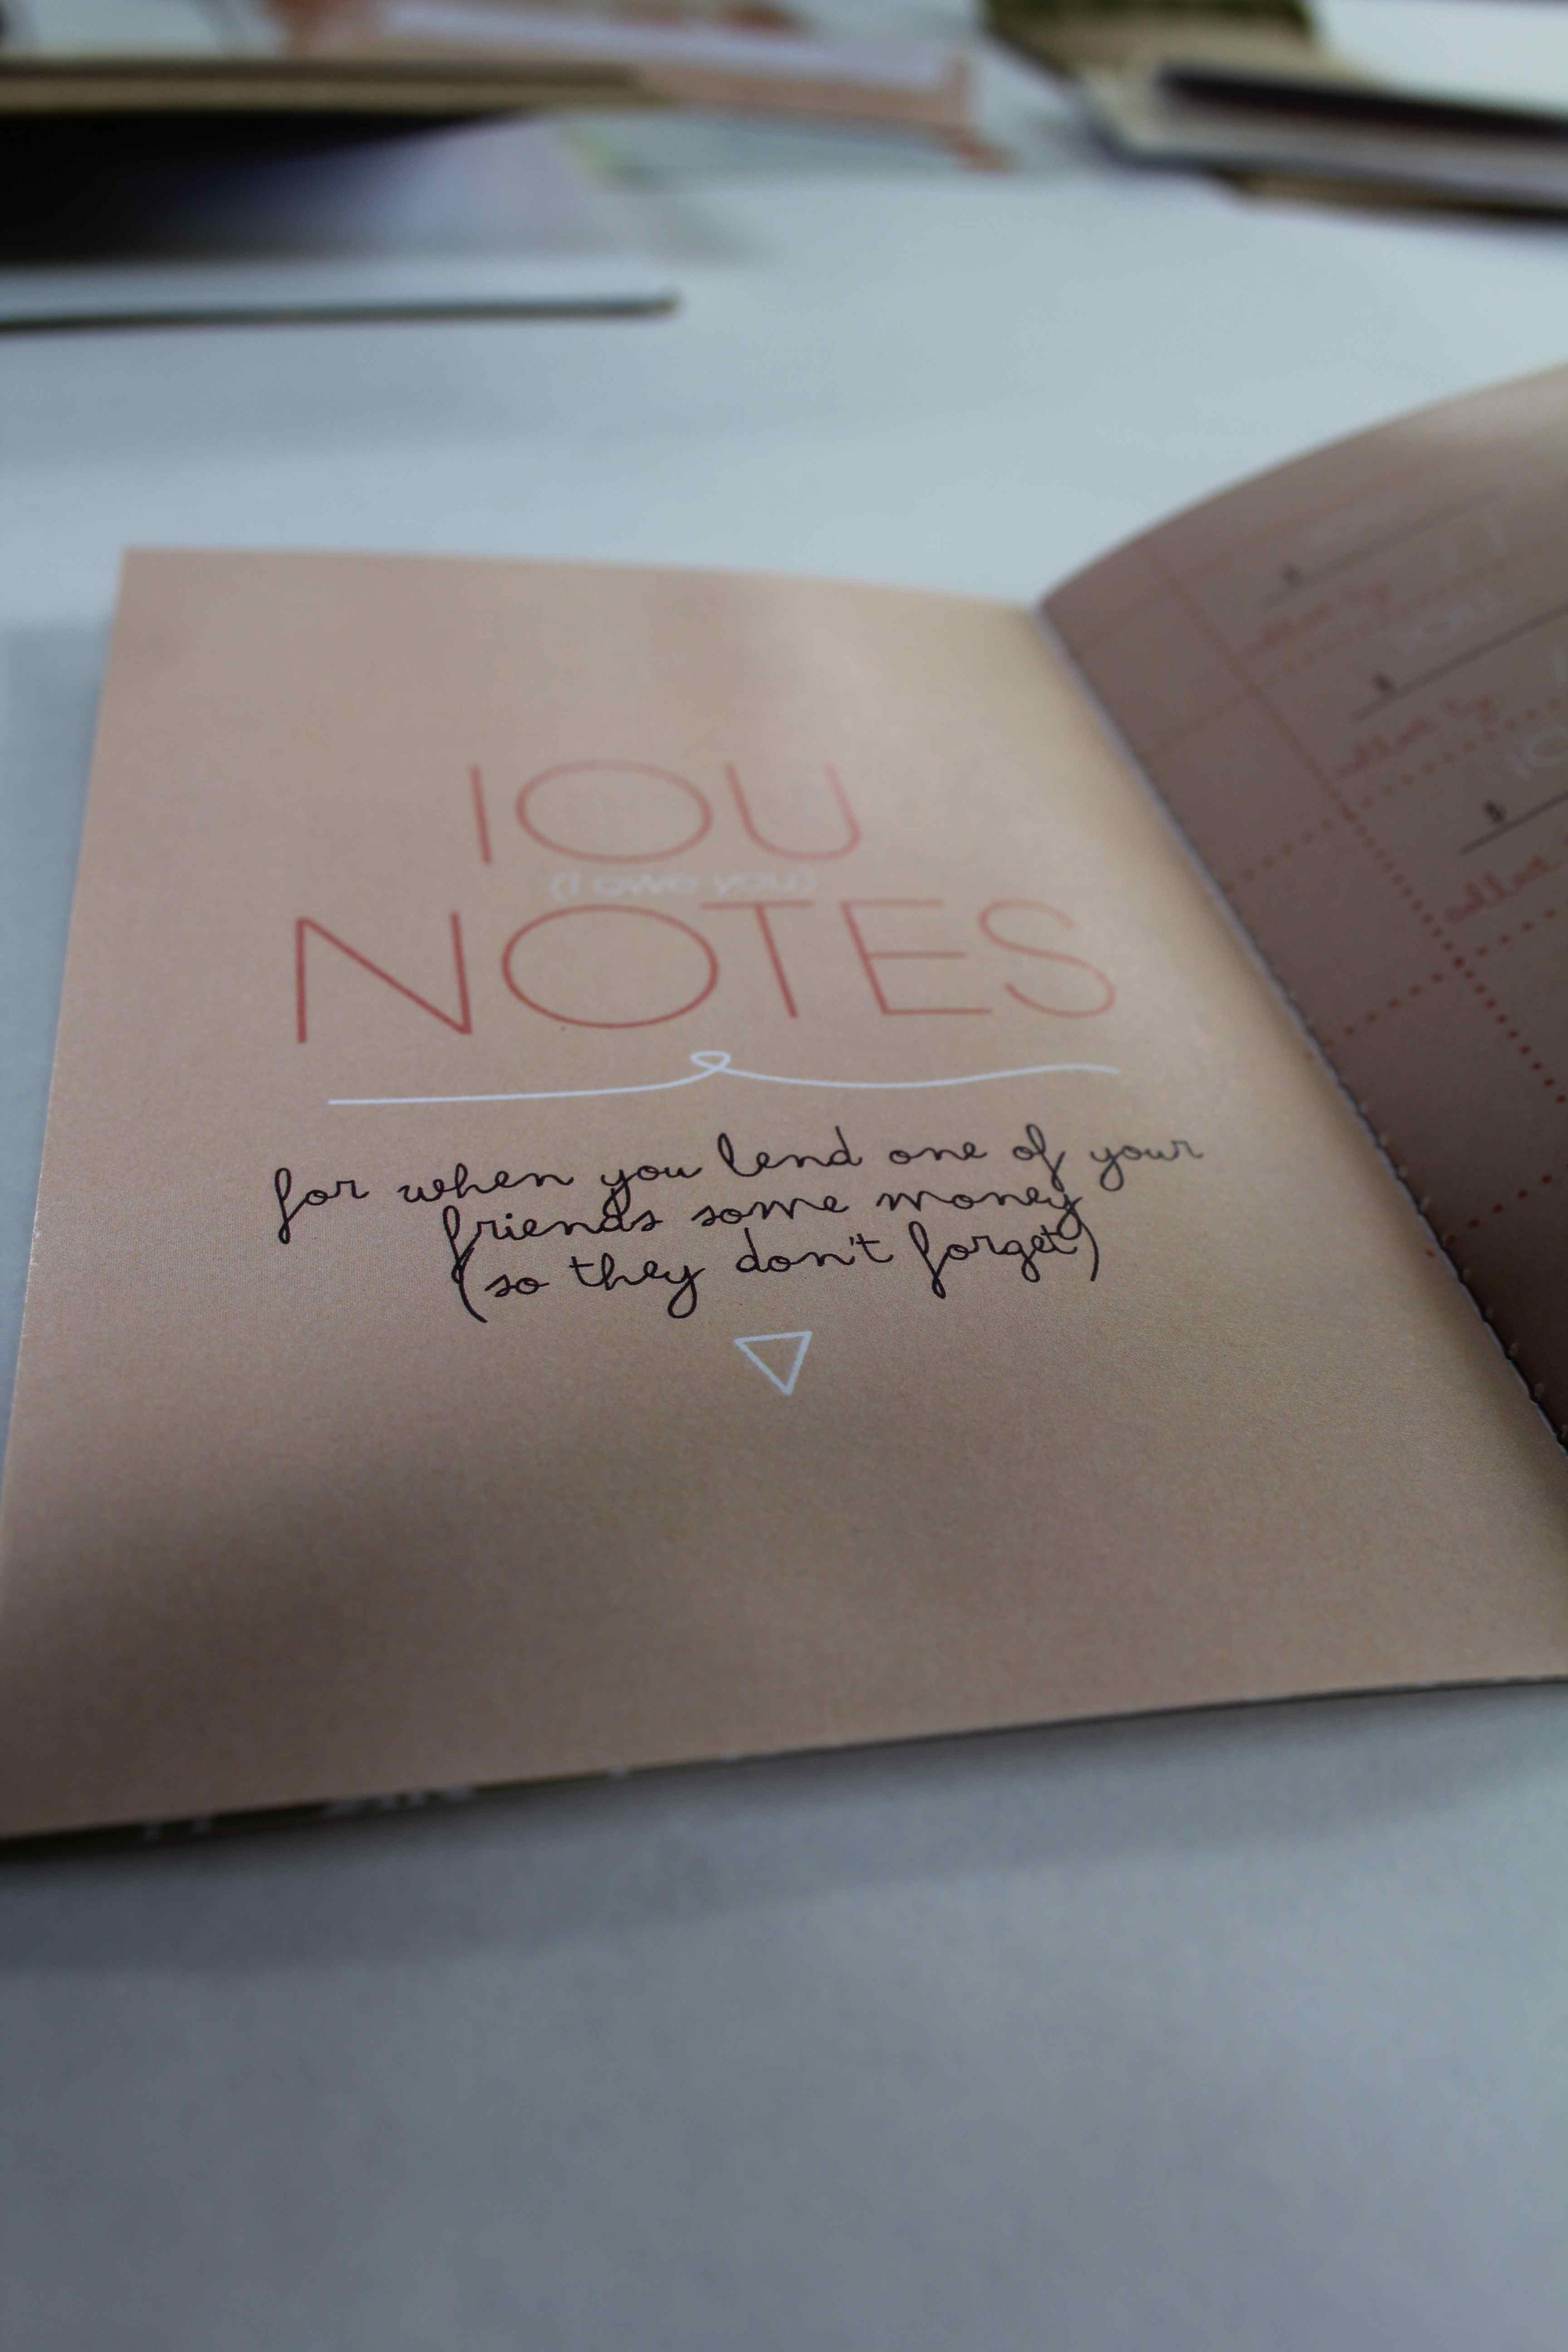 IOU
(I owe you)
NOTES
for when you lend one of your
friends some money
(so they don't forget)